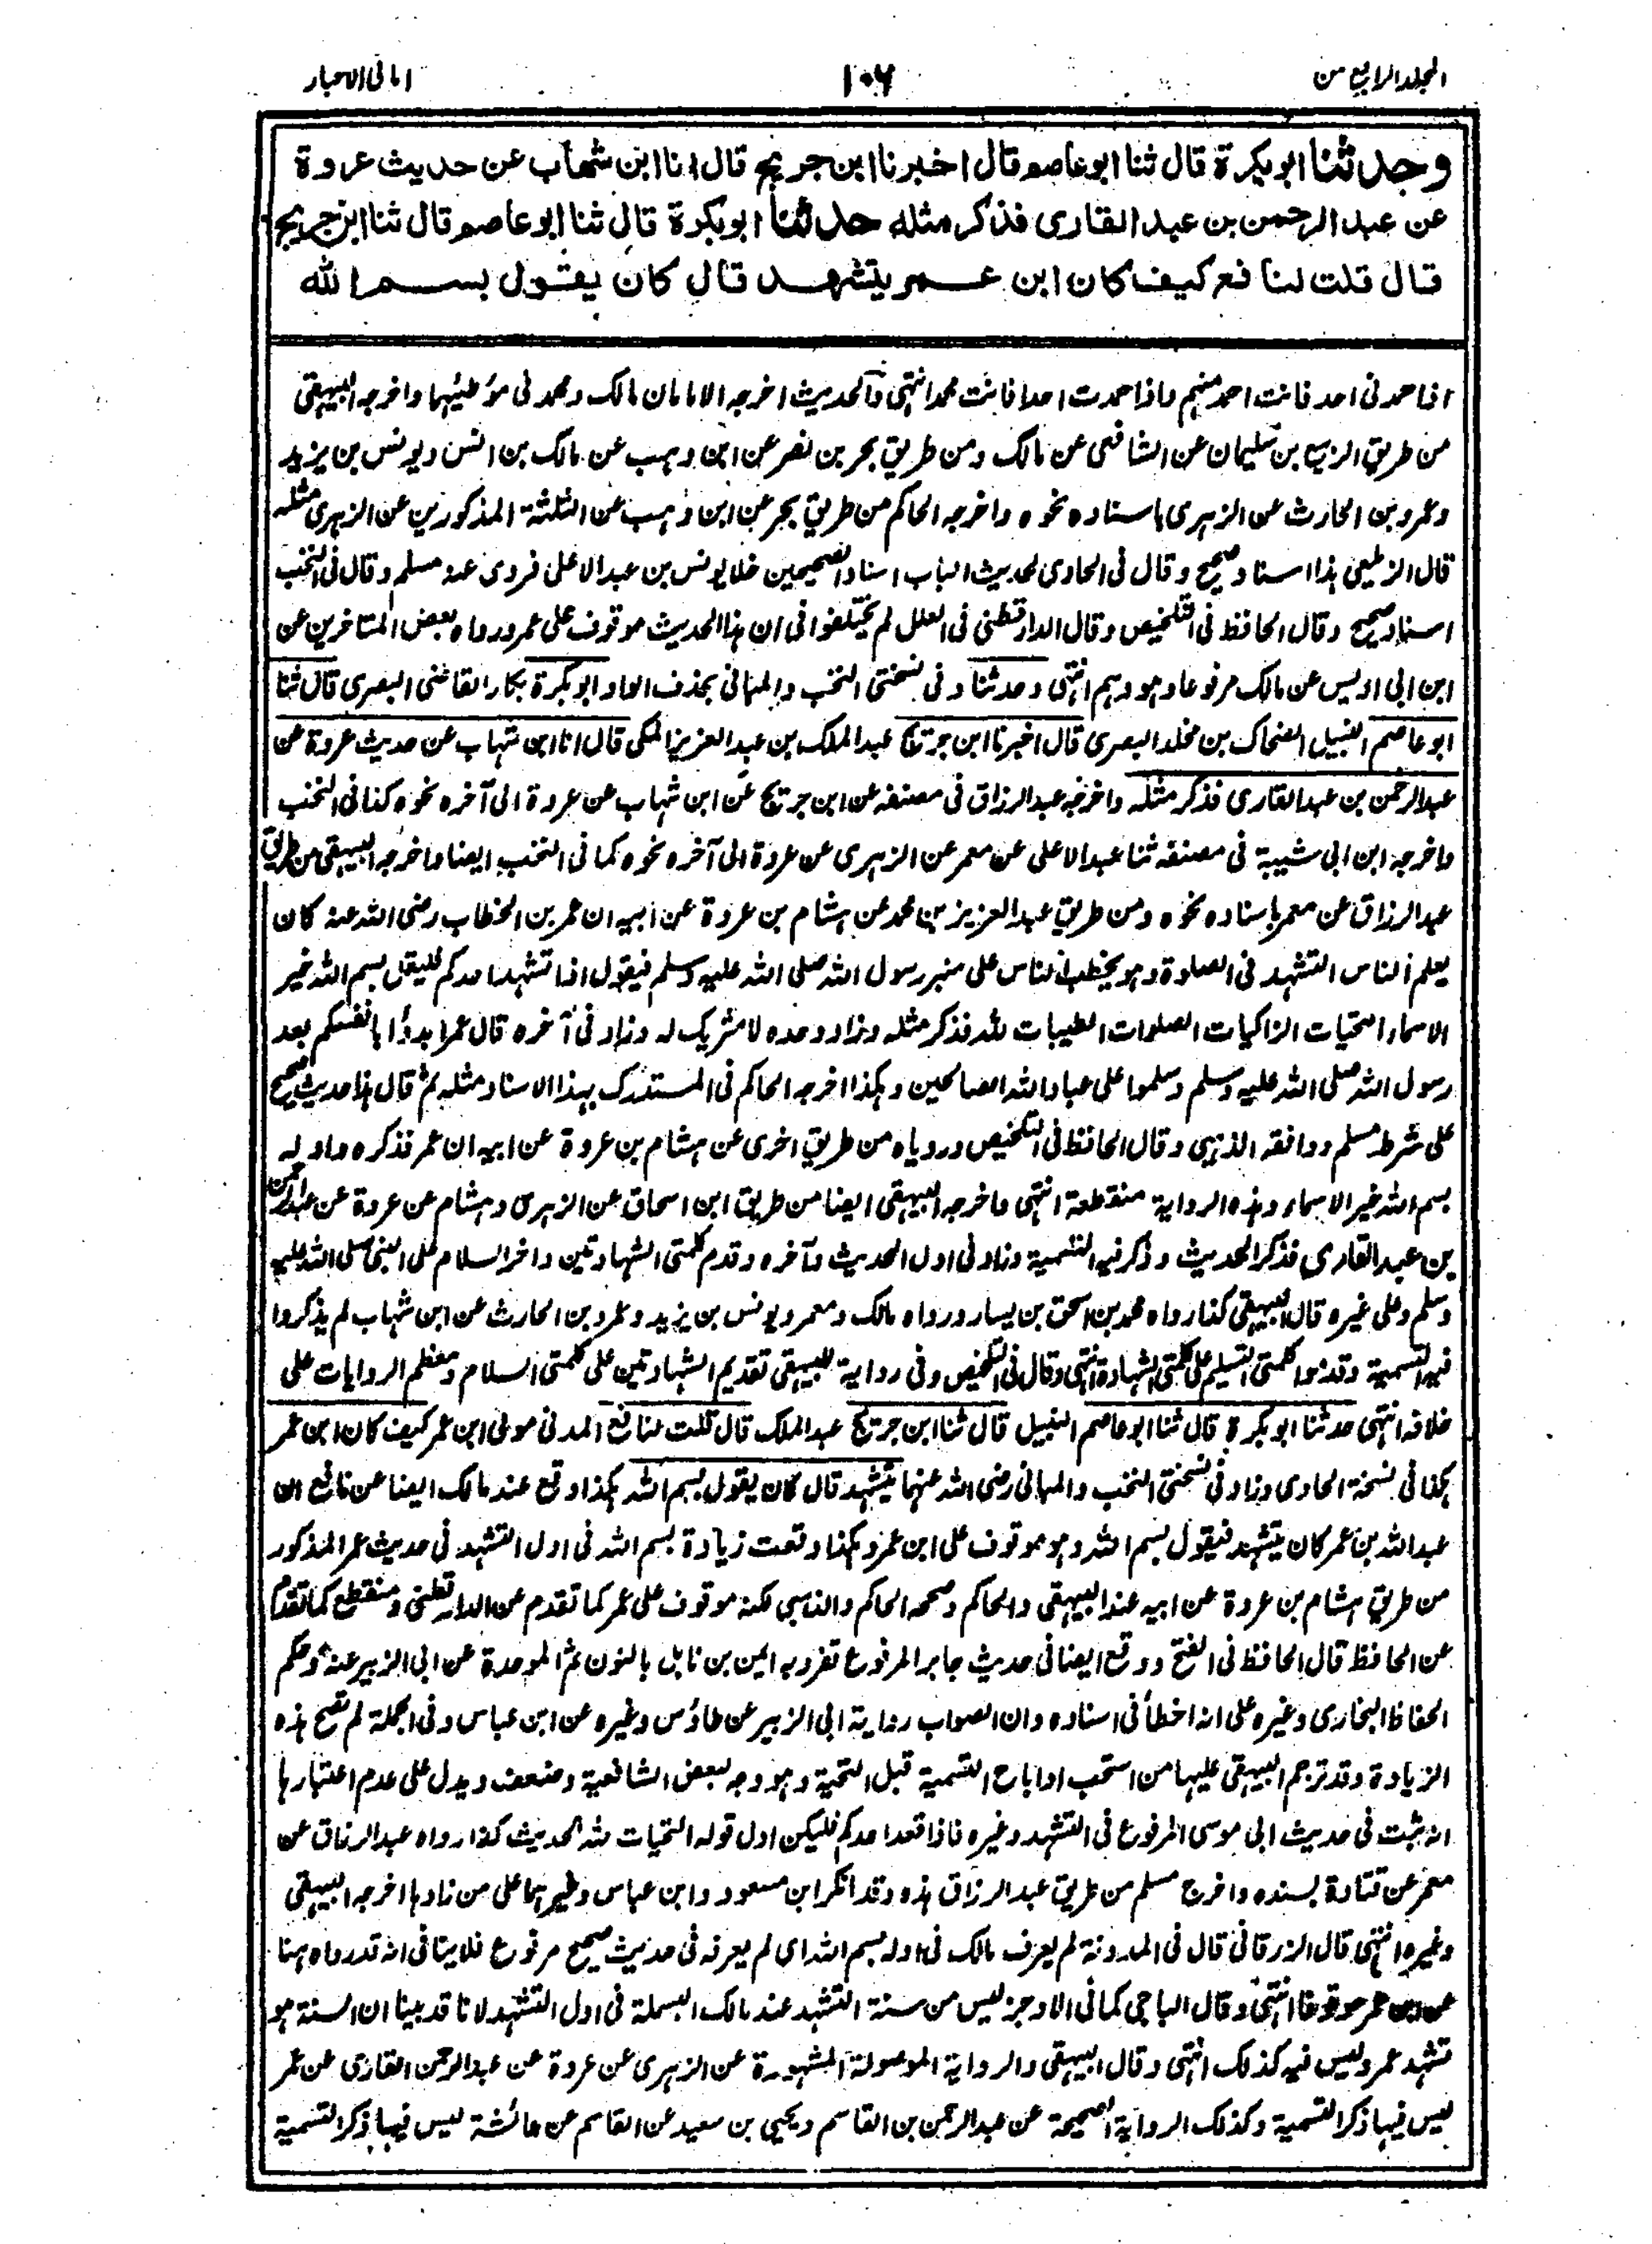 المجلد الرابع من
١٠٦
امانی الاحبار
وحدثنا ابوبكرة قال ثنا ابوعاصم قال اخبرنا ابن جريج قال انا ابن شهاب عن حديث عروة
عن عبد الرحمن بن عبد القاری فذكر مثله حدثنا ابوبكرة قال ثنا ابوعاصم قال ثنا ابن جريج
قال قلت لنافع كيف كان ابن عمر يتشهد قال كان يقول بسم الله
اذا حمدنی احد فانت احمد منهم واذا حمدت احدا فانت محمد انتهی والحديث اخرجه الامامان مالك ومحمد فی مؤطئيهما واخرجه البيهقی
من طريق الربيع بن سليمان عن الشافعی عن مالك ومن طريق بحر بن نصر عن ابن وهب عن مالك بن انس ويونس بن يزيد
وعمرو بن الحارث عن الزهری باسناده نحوه واخرجه الحاكم من طريق بحر عن ابن وهب عن الثلثة المذكورين عن الزهری مثله
قال الزيلعی هذا اسناد صحيح وقال فی الحاوی لحديث الباب اسناد الصحيحين خلا يونس بن عبد الاعلی فروی عنه مسلم وقال فی النخب
اسناد صحيح وقال الحافظ فی التلخيص وقال الدارقطنی فی العلل لم يختلفوا فی ان هذا الحديث موقوف علی عمر ورواه بعض المتاخرين عن
ابن ابی اويس عن مالك مرفوعا وهو وهم انتهی وحدثنا وفی نسختی النخب والمبانی بحذف الواو ابوبكرة بكار القاضی البصری قال ثنا
ابوعاصم النبيل الضحاك بن مخلد البصری قال اخبرنا ابن جريج عبد الملك بن عبد العزيز المكی قال انا ابن شهاب عن حديث عروة عن
عبد الرحمن بن عبد القاری فذكر مثله واخرجه عبد الرزاق فی مصنفه عن ابن جريج عن ابن شهاب عن عروة الی آخره نحوه كذا فی النخب
واخرجه ابن ابی شيبة فی مصنفه ثنا عبد الاعلی عن معمر عن الزهری عن عروة الی آخره نحوه كما فی النخب ايضا واخرجه البيهقی من طريق
عبد الرزاق عن معمر باسناده نحوه ومن طريق عبد العزيز بن محمد عن هشام بن عروة عن ابيه ان عمر بن الخطاب رضی الله عنه كان
يعلم الناس التشهد فی الصلوة وهو يخطب الناس علی منبر رسول الله صلی الله عليه وسلم فيقول اذا تشهد احدكم فليقل بسم الله خير
الاسماء التحيات الزاكيات الصلوات الطيبات لله فذكر مثله وزاد وحده لا شريك له وزاد فی آخره قال عمر ابدؤا بانفسكم بعد
رسول الله صلی الله عليه وسلم وسلموا علی عباد الله الصالحين وهكذا اخرجه الحاكم فی المستدرك بهذا الاسناد مثله ثم قال هذا حديث صحيح
علی شرط مسلم ووافقه الذهبی وقال الحافظ فی التلخيص ورواه من طريق اخری عن هشام بن عروة عن ابيه ان عمر فذكره واوله
بسم الله خير الاسماء وهذه الرواية منقطعة انتهی واخرجه البيهقی ايضا من طريق ابن اسحاق عن الزهری وهشام عن عروة عن عبد الرحمن
بن عبد القاری فذكر الحديث وذكر فيه التسمية وزاد فی اول الحديث وآخره وقدم كلمتی الشهادتين واخر السلام علی النبی صلی الله عليه
وسلم وعلی غيره قال البيهقی كذا رواه محمد بن اسحق بن يسار ورواه مالك ومعمر ويونس بن يزيد وعمرو بن الحارث عن ابن شهاب لم يذكروا
فيه التسمية وقدموا كلمتی التسليم علی كلمتی الشهادة انتهی وقال فی التلخيص وفی رواية للبيهقی تقديم الشهادتين علی كلمتی السلام ومعظم الروايات علی
خلافه انتهی حدثنا ابوبكرة قال ثنا ابوعاصم النبيل قال ثنا ابن جريج عبد الملك قال قلت لنافع المدنی مولی ابن عمر كيف كان ابن عمر
هكذا فی نسخة الحاوی وزاد فی نسختی النخب والمبانی رضی الله عنهما يتشهد قال كان يقول بسم الله هكذا وقع عند مالك ايضا عن نافع ان
عبد الله بن عمر كان يتشهد فيقول بسم الله وهو موقوف علی ابن عمر وهكذا وقعت زيادة بسم الله فی اول التشهد فی حديث عمر المذكور
من طريق هشام بن عروة عن ابيه عند البيهقی والحاكم وصححه الحاكم والذهبی لكنه موقوف علی عمر كما تقدم عن الدارقطنی ومنقطع كما تقدم
عن الحافظ قال الحافظ فی الفتح ووقع ايضا فی حديث جابر المرفوع تفرد به ايمن بن نابل بالنون ثم الموحدة عن ابی الزبير عنه وحكم
الحفاظ البخاری وغيره علی انه اخطأ فی اسناده وان الصواب رواية ابی الزبير عن طاؤس وغيره عن ابن عباس وفی الجملة لم تصح هذه
الزيادة وقد ترجم البيهقی عليها من استحب او اباح التسمية قبل التحية وهو وجه لبعض الشافعية وضعف ويدل علی عدم اعتبارها
انه ثبت فی حديث ابی موسی المرفوع فی التشهد وغيره فاذا قعد احدكم فليكن اول قوله التحيات لله الحديث كذا رواه عبد الرزاق عن
معمر عن قتادة بسنده واخرج مسلم من طريق عبد الرزاق هذه وقد انكر ابن مسعود وابن عباس وغيرهما علی من زادها اخرجه البيهقی
وغيره انتهی قال الزرقانی قال فی المدونة لم يعرف مالك فی اوله بسم الله ای لم يعرفه فی حديث صحيح مرفوع فلا ينافی انه قد رواه هنا
عن ابن عمر موقوفا انتهی وقال الباجی كما فی الاوجز ليس من سنة التشهد عند مالك البسملة فی اول التشهد لانا قد بينا ان السنة هو
تشهد عمر وليس فيه كذلك انتهی وقال البيهقی والرواية الموصولة المشهورة عن الزهری عن عروة عن عبد الرحمن القاری عن عمر
ليس فيها ذكر التسمية وكذلك الرواية الصحيحة عن عبد الرحمن بن القاسم ويحيی بن سعيد عن القاسم عن عائشة ليس فيها ذكر التسمية